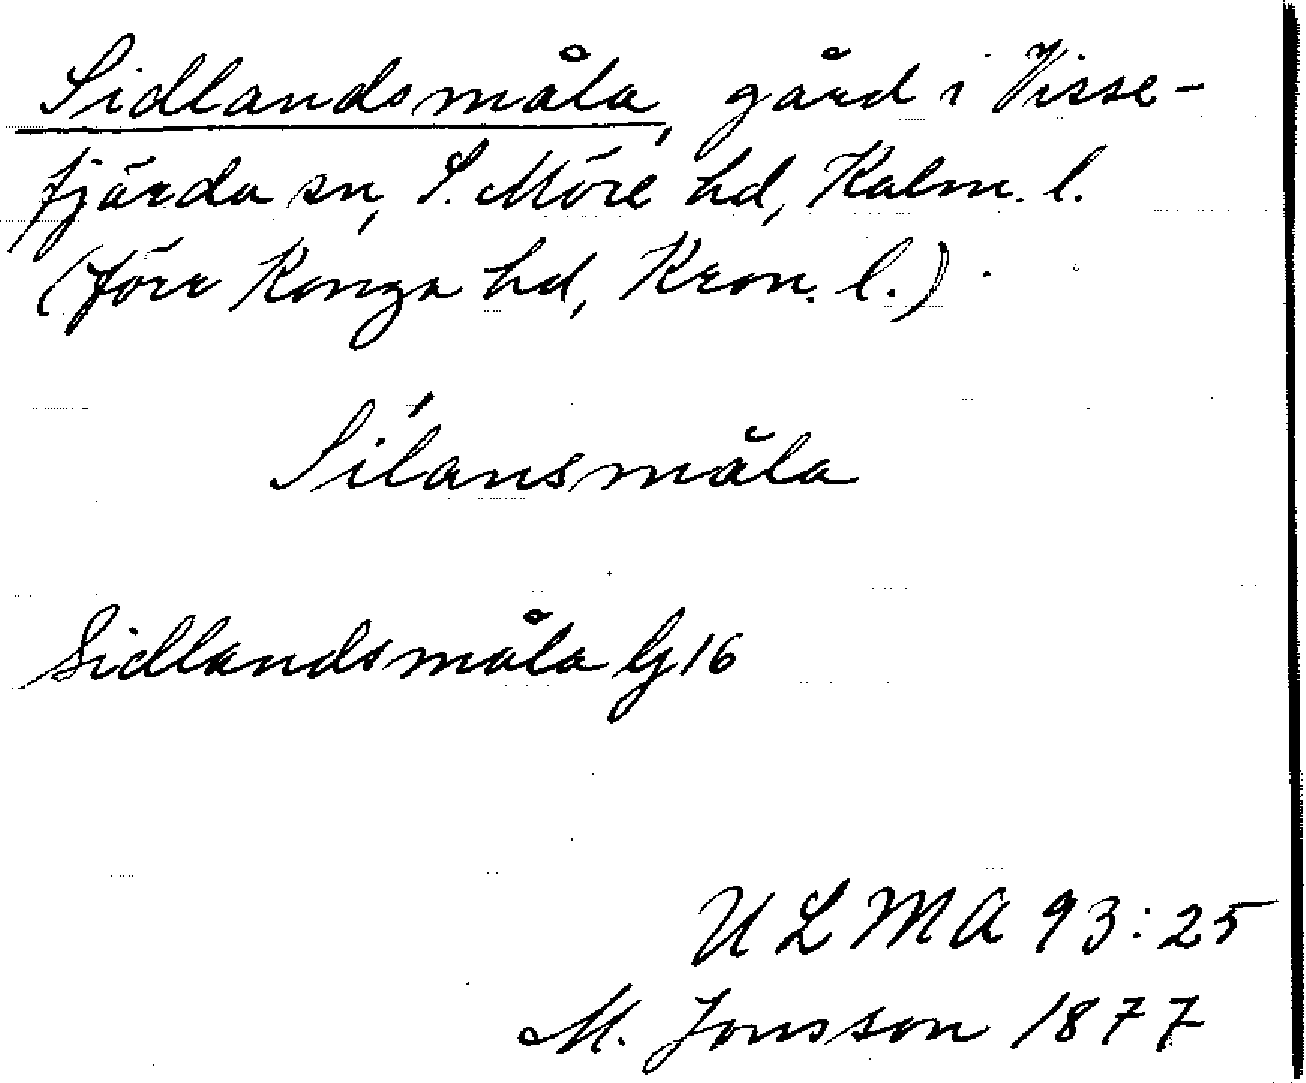 Sidlandsmåla, gård i Visse-
fjärda sn, S. Möre hd, Kalm. l.
(förr Konga hd, Kron. l.).
Sílansmåla
Sidlandsmåla G16
ULMA 93:25
M. Jonsson 1877